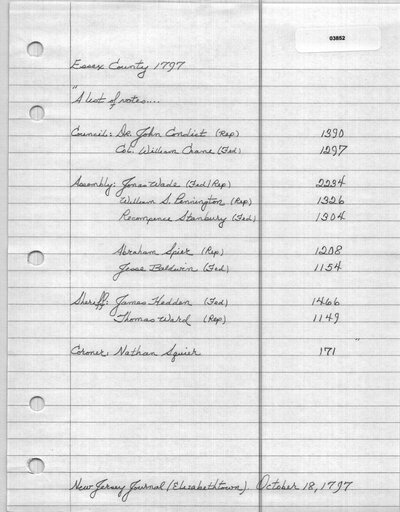 03852
Essex County 1797
"A list of votes....
Council: Dr. John Condict (Rep) 1390
Col. William Crane (Fed) 1297
Assembly: Jonas Wade (Fed/Rep) 2234
William S. Pennington (Rep) 1326
Recompence Stanbury (Fed) 1304
Abraham Spier (Rep) 1208
Jesse Baldwin (Fed) 1154
Sheriff: James Hedden (Fed) 1466
Thomas Ward (Rep) 1149
Coroner: Nathan Squier 171 "
New Jersey Journal (Elizabethtown). October 18, 1797